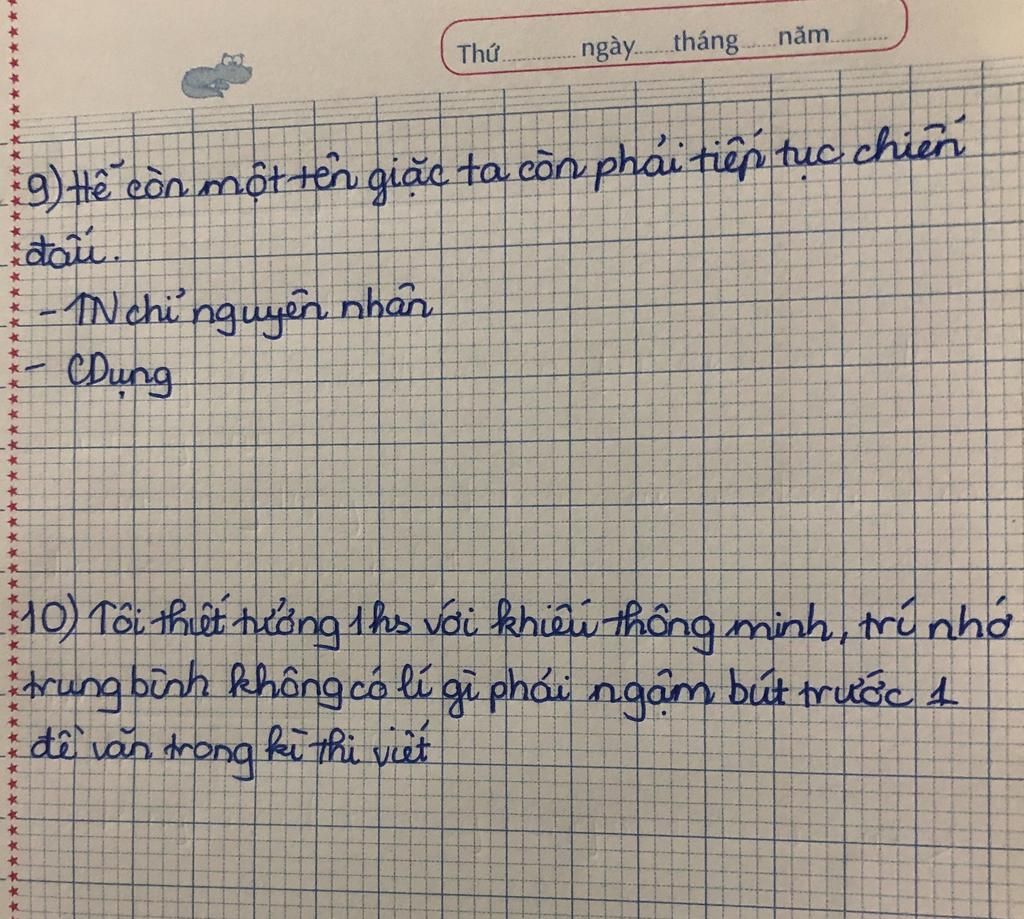 Thứ.............. ngày.......tháng......năm...........
9) Hễ còn một tên giặc ta còn phải tiếp tục chiến
đấu.
- TN chỉ nguyên nhân
- CDụng
10) Tôi thiết tưởng 1 hs với khiếu thông minh, trí nhớ
trung bình không có lí gì phải ngậm bút trước 1
đề văn trong kì thi viết